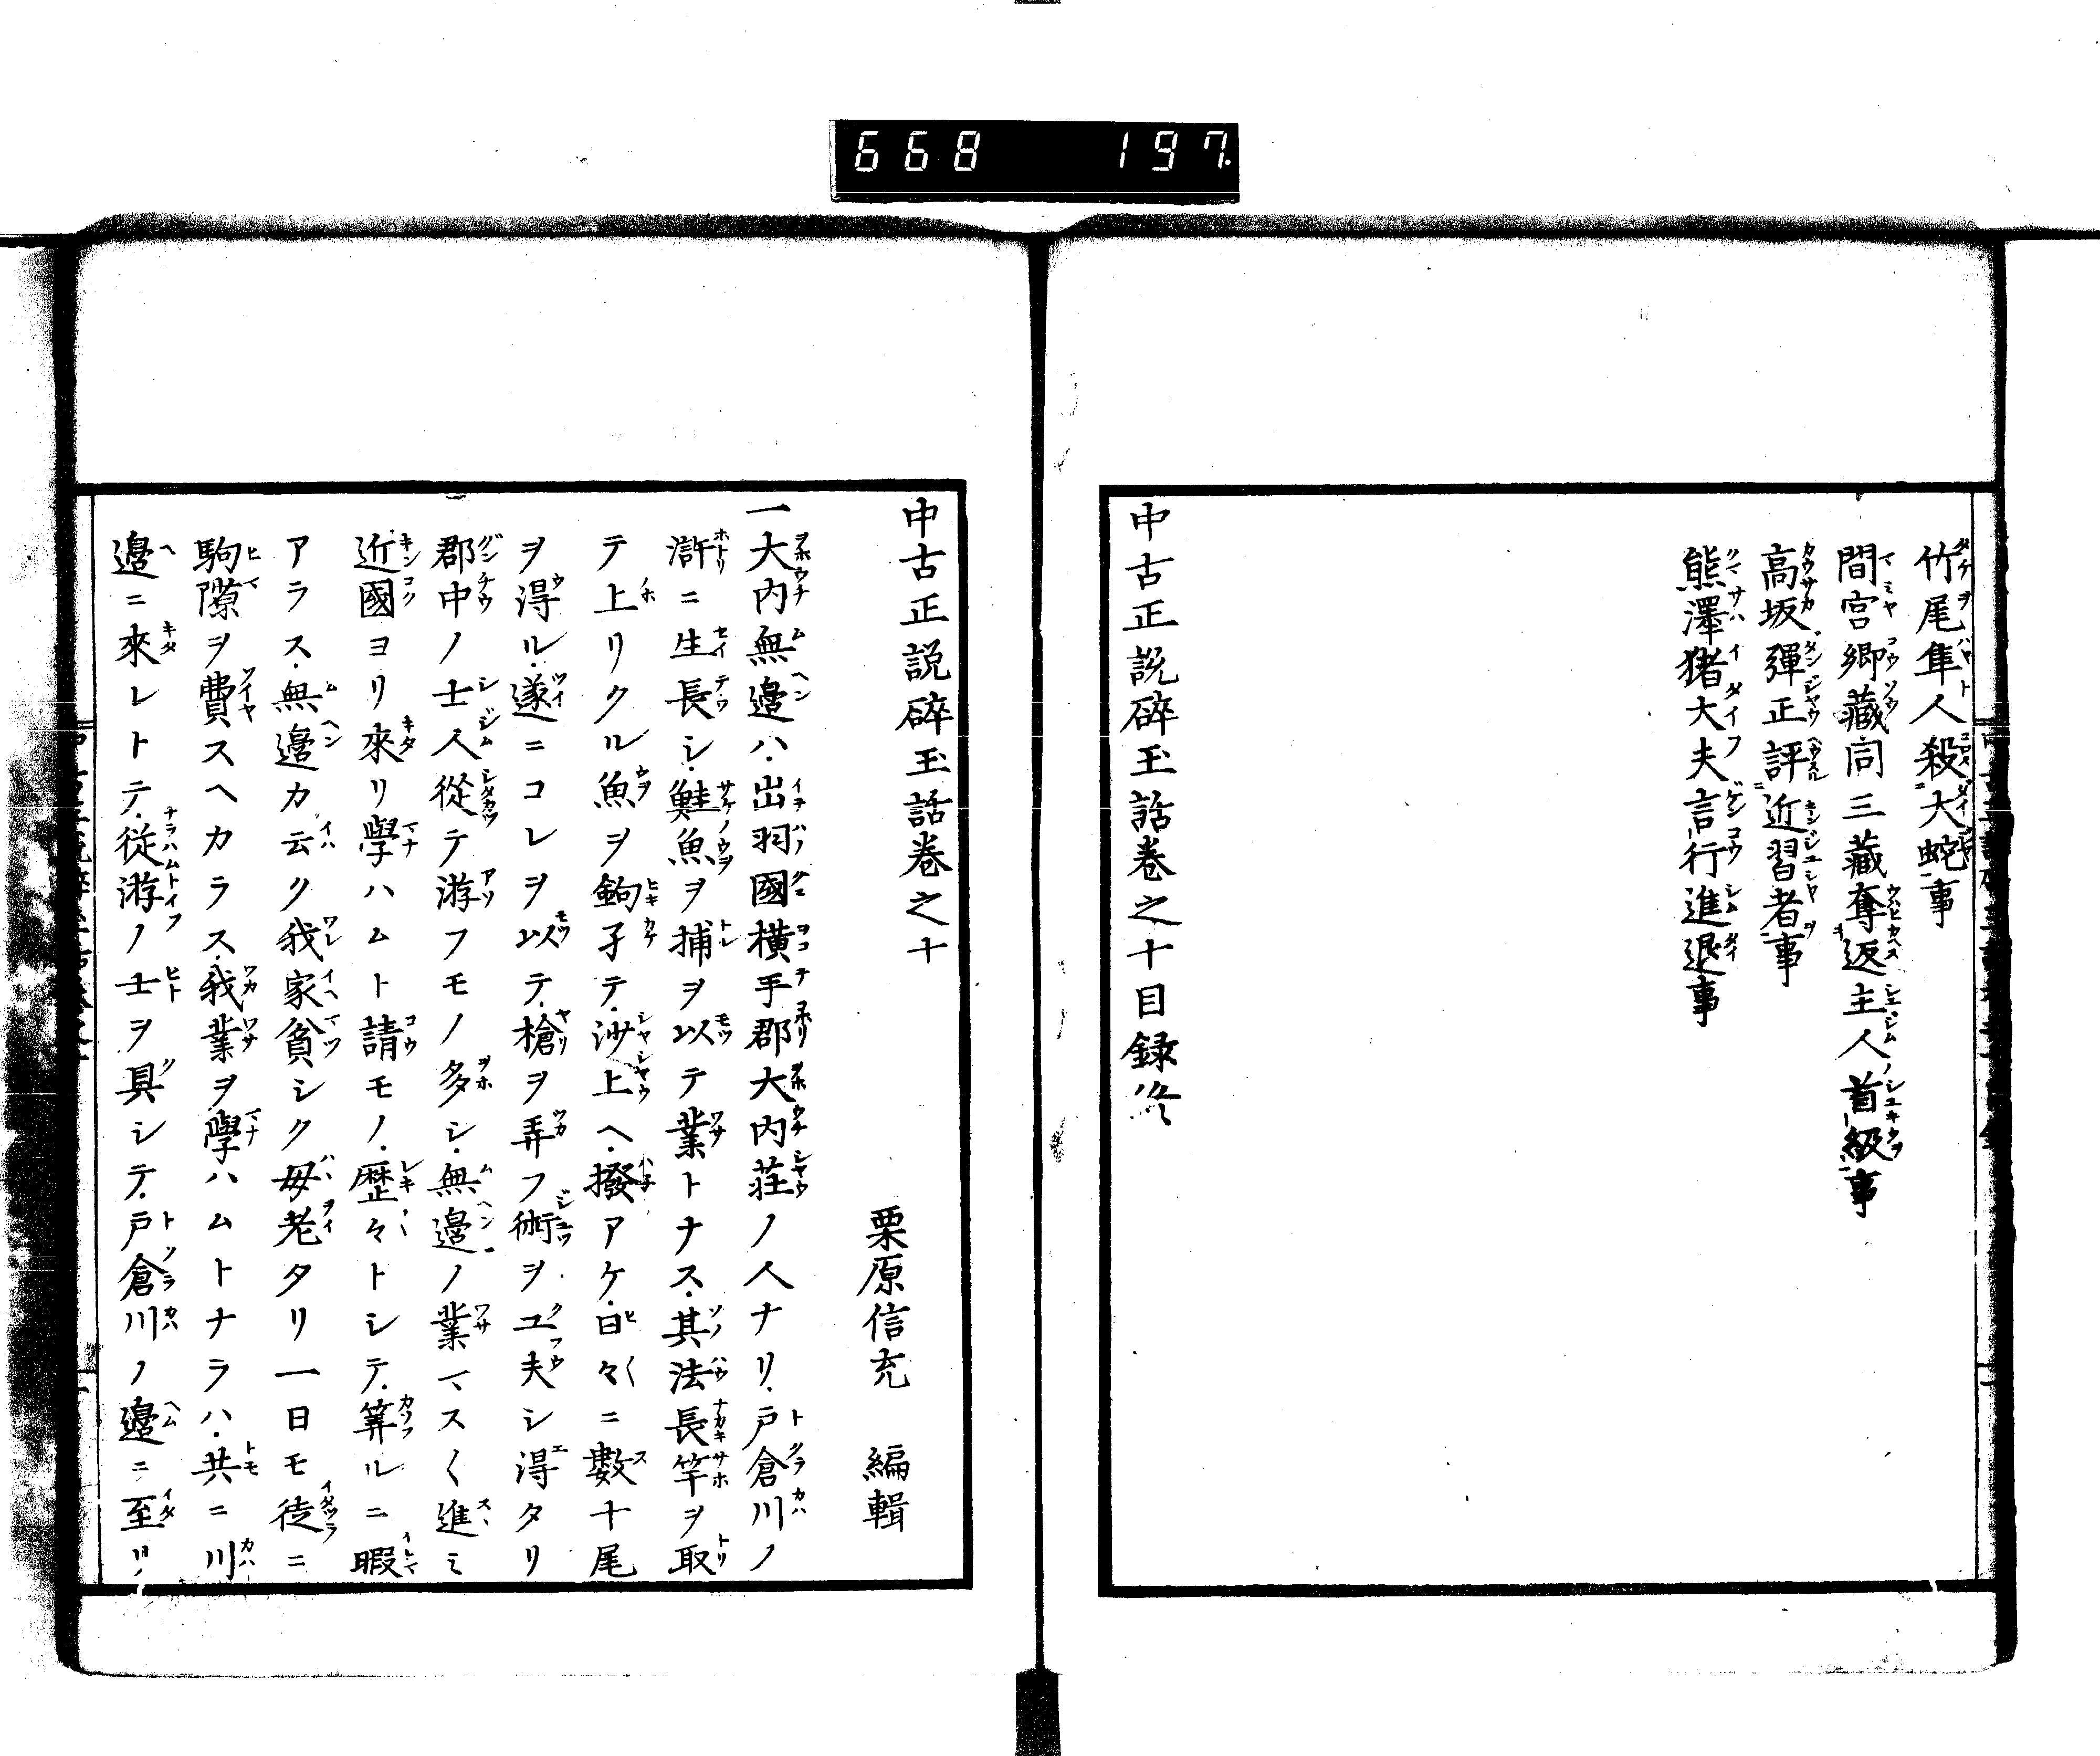 668 197.
竹尾隼人殺大蛇事
間宮郷藏同三藏奪返主人首級事
高坂彈正評近習者事
熊澤猪大夫言行進退事
中古正説碎玉話巻之十目録終
中古正説碎玉話巻之十
栗原信充 編輯
一大内無邉ハ出羽國横手郡大内荘ノ人ナリ戸倉川ノ
滸ニ生長シ鮭魚ヲ捕ヲ以テ業トナス其法長竿ヲ取
テ上リクル魚ヲ鉤子テ沙上ヘ撥アケ日々ニ數十尾
ヲ得ル遂ニコレヲ以テ槍ヲ弄フ術ヲ工夫シ得タリ
郡中ノ士人從テ游フモノ多シ無邉ノ業マス〱進ミ
近國ヨリ來リ學ハムト請モノ歴々トシテ算ルニ暇
アラス無邉カ云ク我家貧シク母老タリ一日モ徒ニ
駒隙ヲ費スヘカラス我業ヲ學ハムトナラハ共ニ川
邉ニ來レトテ從游ノ士ヲ具シテ戸倉川ノ邉ニ至リ